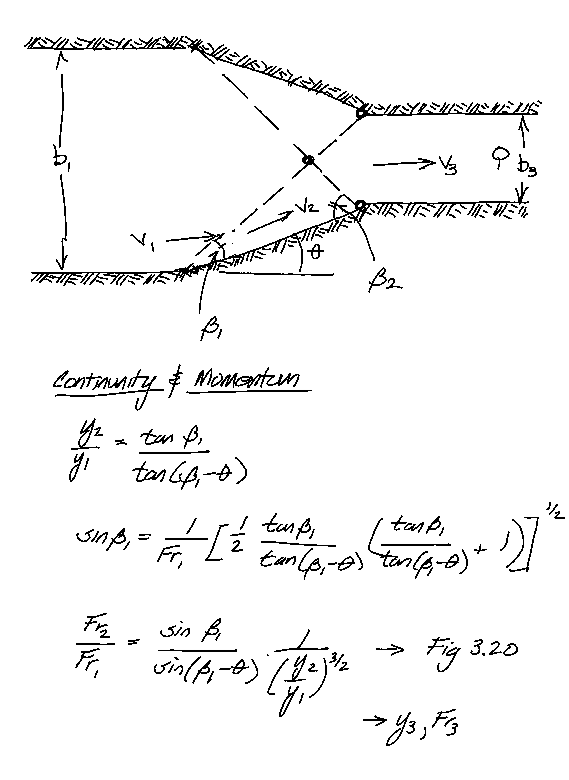 b₁
V₁
V₂
V₃
b₃
θ
β₁
β₂
Continuity & Momentum
y₂/y₁ = tan β₁ / tan(β₁-θ)
sin β₁ = 1/Fr₁ [ 1/2 tan β₁ / tan(β₁-θ) ( tan β₁ / tan(β₁-θ) + 1 ) ]^1/2
Fr₂/Fr₁ = sin β₁ / sin(β₁-θ) · 1/(y₂/y₁)^3/2 → Fig 3.20
→ y₃, Fr₃